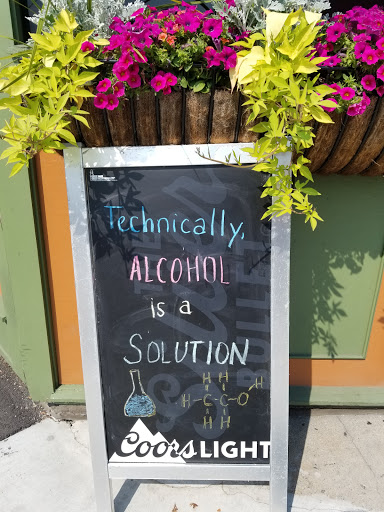 Technically,
ALCOHOL
is a
SOLUTION
H H H
H-C-C-O
H H
Coors LIGHT